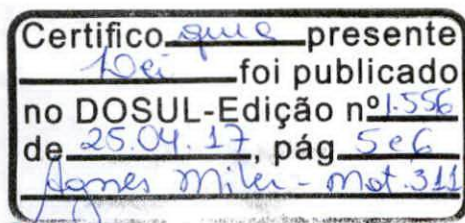 Certifico que presente
Lei foi publicado
no DOSUL-Edição nº 1.556
de 25.04.17, pág 5 e 6
Agnes Miler - mat. 311